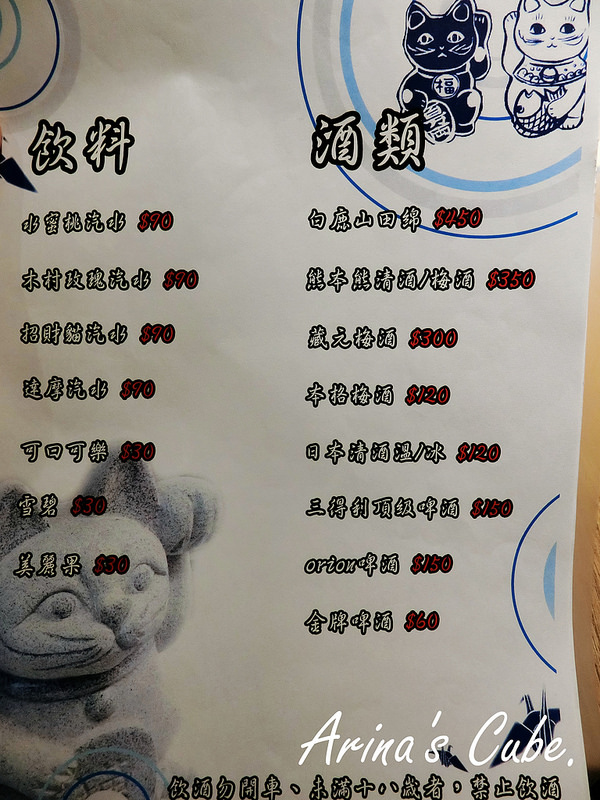 飲料
水蜜桃汽水 $90
木村玫瑰汽水 $90
招財貓汽水 $90
達摩汽水 $90
可口可樂 $30
雪碧 $30
美麗果 $30
酒類
白鹿山田綿 $450
熊本熊清酒/梅酒 $350
藏元梅酒 $300
本格梅酒 $120
日本清酒溫/冰 $120
三得利頂級啤酒 $150
orion啤酒 $150
金牌啤酒 $60
福
Arina's Cube.
飲酒勿開車、未滿十八歲者,禁止飲酒